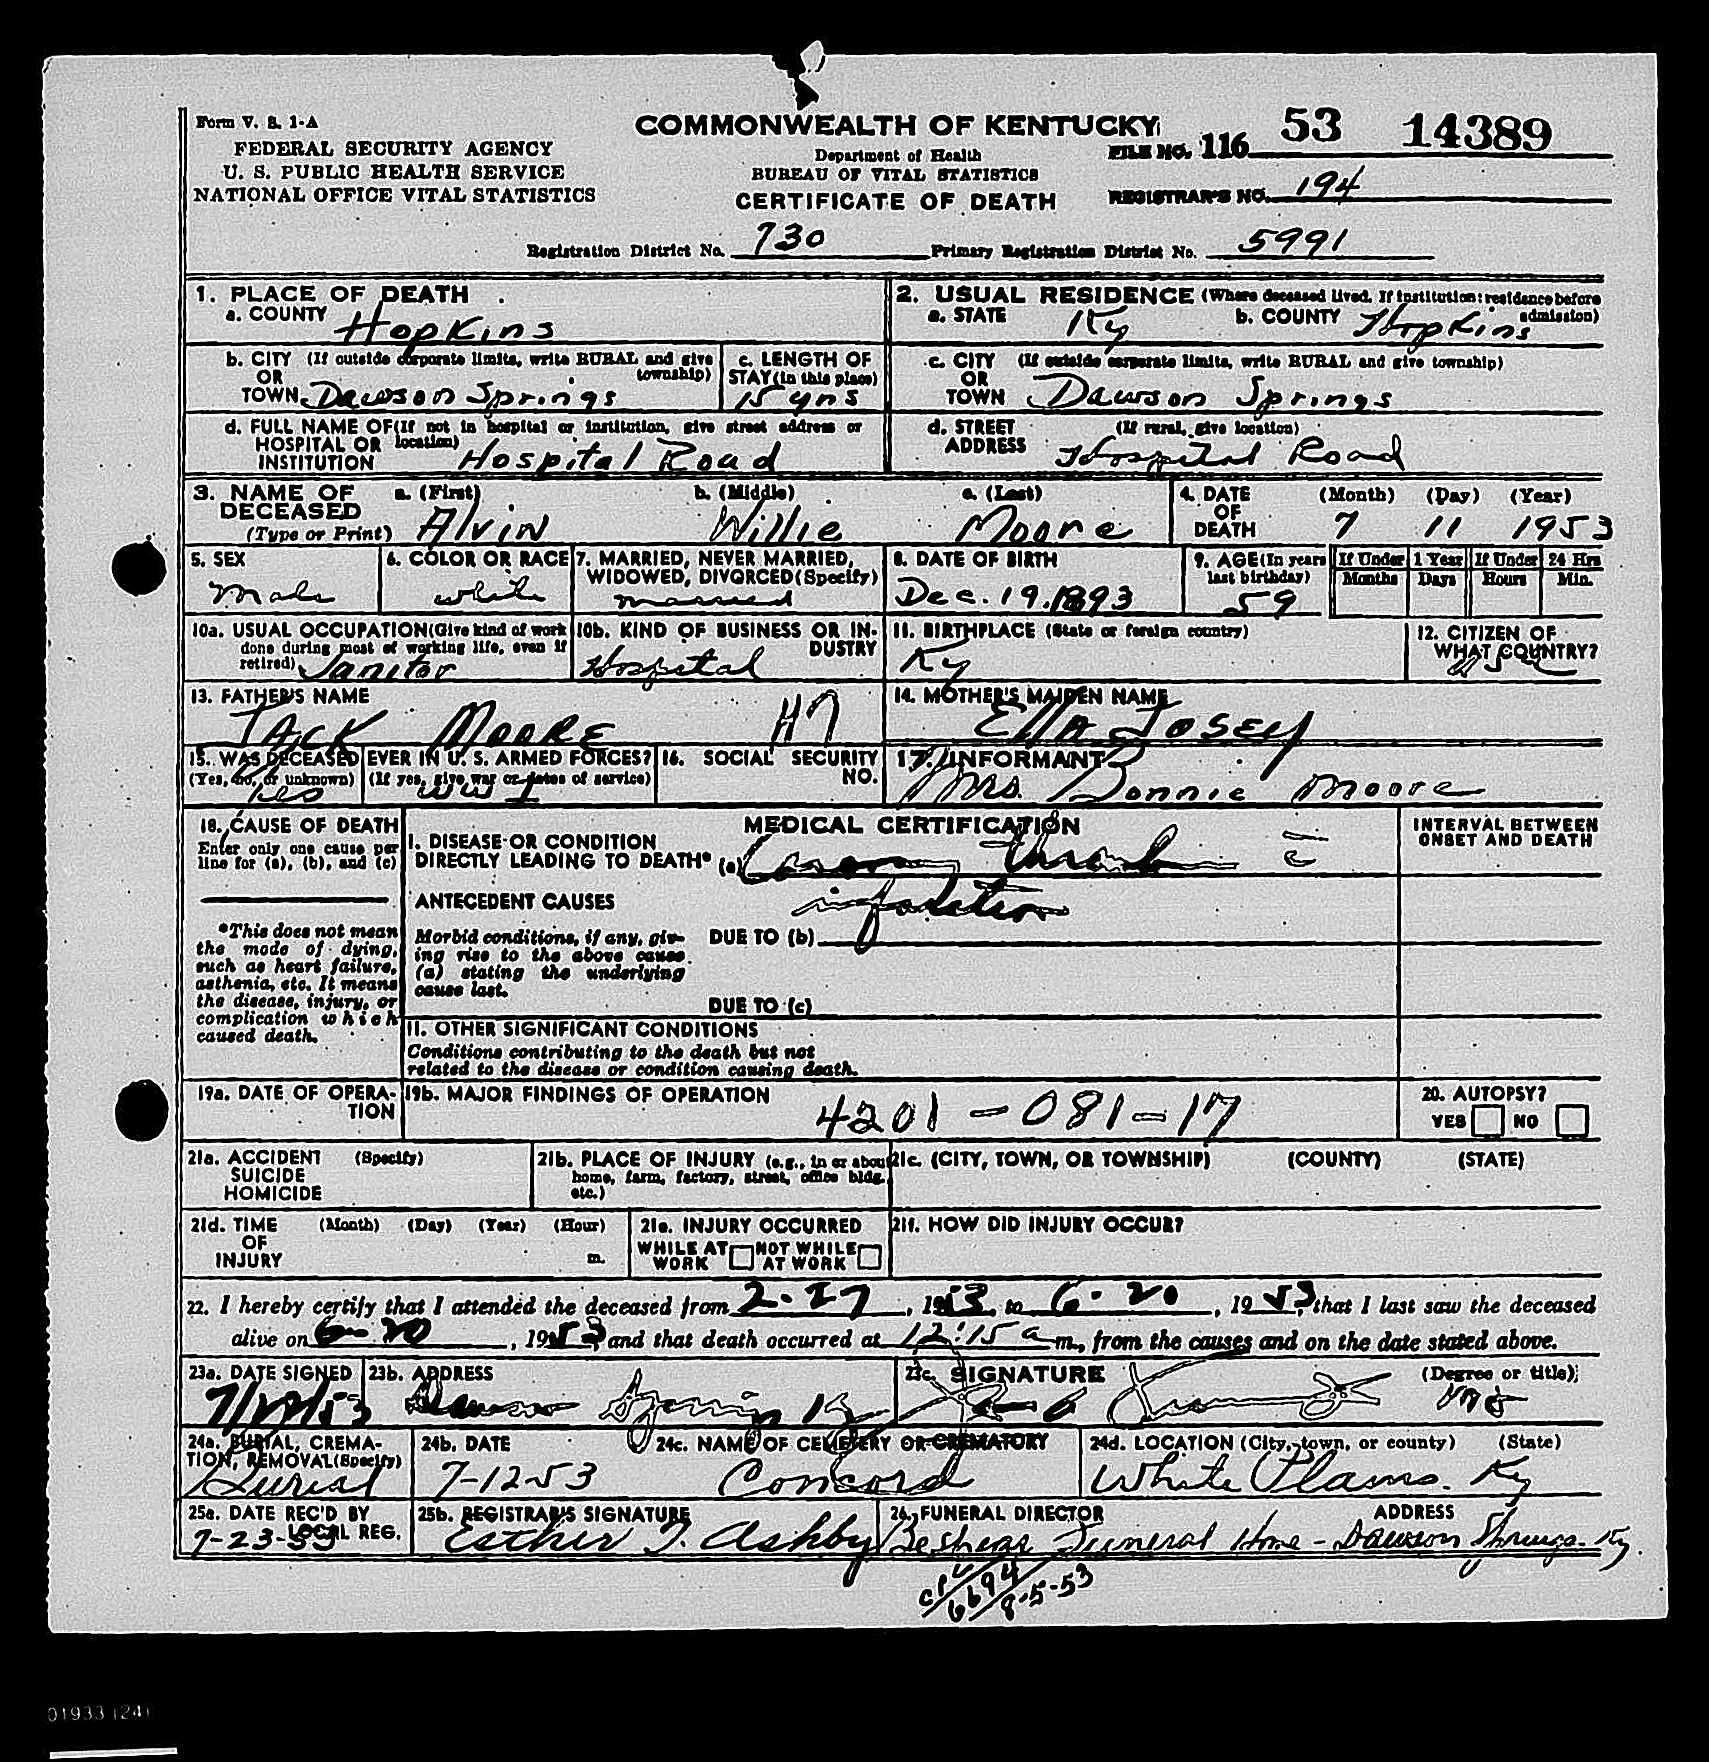 Form V. S. 1-A
FEDERAL SECURITY AGENCY
U. S. PUBLIC HEALTH SERVICE
NATIONAL OFFICE VITAL STATISTICS
COMMONWEALTH OF KENTUCKY
Department of Health
BUREAU OF VITAL STATISTICS
CERTIFICATE OF DEATH
FILE NO. 116 53 14389
REGISTRAR'S NO. 194
Registration District No. 730 Primary Registration District No. 5991
1. PLACE OF DEATH
a. COUNTY Hopkins
2. USUAL RESIDENCE (Where deceased lived. If institution: residence before admission)
a. STATE Ky b. COUNTY Hopkins
b. CITY (If outside corporate limits, write RURAL and give township)
OR
TOWN Dawson Springs
c. LENGTH OF
STAY (in this place)
15 yrs
c. CITY (If outside corporate limits, write RURAL and give township)
OR
TOWN Dawson Springs
d. FULL NAME OF (If not in hospital or institution, give street address or location)
HOSPITAL OR
INSTITUTION Hospital Road
d. STREET (If rural, give location)
ADDRESS Hospital Road
3. NAME OF DECEASED
(Type or Print)
a. (First) Alvin
b. (Middle) Willie
c. (Last) Moore
4. DATE OF DEATH
(Month) (Day) (Year)
7 11 1953
5. SEX
Male
6. COLOR OR RACE
white
7. MARRIED, NEVER MARRIED, WIDOWED, DIVORCED (Specify)
married
8. DATE OF BIRTH
Dec. 19, 1893
9. AGE (In years last birthday)
59
If Under 1 Year
Months Days
If Under 24 Hrs
Hours Min.
10a. USUAL OCCUPATION (Give kind of work done during most of working life, even if retired)
Janitor
10b. KIND OF BUSINESS OR INDUSTRY
Hospital
11. BIRTHPLACE (State or foreign country)
Ky
12. CITIZEN OF WHAT COUNTRY?
USA
13. FATHER'S NAME
JACK MOORE H7
14. MOTHER'S MAIDEN NAME
Ella Josey
15. WAS DECEASED EVER IN U. S. ARMED FORCES?
(Yes, no, or unknown) (If yes, give war or dates of service)
Yes WW I
16. SOCIAL SECURITY NO.
17. INFORMANT
Mrs. Bonnie Moore
18. CAUSE OF DEATH
Enter only one cause per line for (a), (b), and (c)
MEDICAL CERTIFICATION
INTERVAL BETWEEN ONSET AND DEATH
I. DISEASE OR CONDITION
DIRECTLY LEADING TO DEATH* (a)
ANTECEDENT CAUSES
*This does not mean the mode of dying, such as heart failure, asthenia, etc. It means the disease, injury, or complication which caused death.
Morbid conditions, if any, giving rise to the above cause (a) stating the underlying cause last.
DUE TO (b)
DUE TO (c)
II. OTHER SIGNIFICANT CONDITIONS
Conditions contributing to the death but not related to the disease or condition causing death.
19a. DATE OF OPERATION
19b. MAJOR FINDINGS OF OPERATION
4201-081-17
20. AUTOPSY?
YES NO
21a. ACCIDENT (Specify)
SUICIDE
HOMICIDE
21b. PLACE OF INJURY (e.g., in or about home, farm, factory, street, office bldg. etc.)
21c. (CITY, TOWN, OR TOWNSHIP) (COUNTY) (STATE)
21d. TIME OF INJURY (Month) (Day) (Year) (Hour)
m.
21e. INJURY OCCURRED
WHILE AT WORK NOT WHILE AT WORK
21f. HOW DID INJURY OCCUR?
22. I hereby certify that I attended the deceased from 2-27, 1953, to 6-20, 1953, that I last saw the deceased
alive on 6-20, 1953, and that death occurred at 12:15 a m., from the causes and on the date stated above.
23a. DATE SIGNED
23b. ADDRESS
Dawson Springs Ky
23c. SIGNATURE (Degree or title)
MD
24a. BURIAL, CREMATION, REMOVAL (Specify)
Burial
24b. DATE
7-12-53
24c. NAME OF CEMETERY OR CREMATORY
Concord
24d. LOCATION (City, town, or county) (State)
White Plains. Ky
25a. DATE REC'D BY LOCAL REG.
7-23-53
25b. REGISTRAR'S SIGNATURE
Esther T. Ashby
26. FUNERAL DIRECTOR ADDRESS
Beshear Funeral Home - Dawson Springs. Ky.
8-5-53
01933 (24)